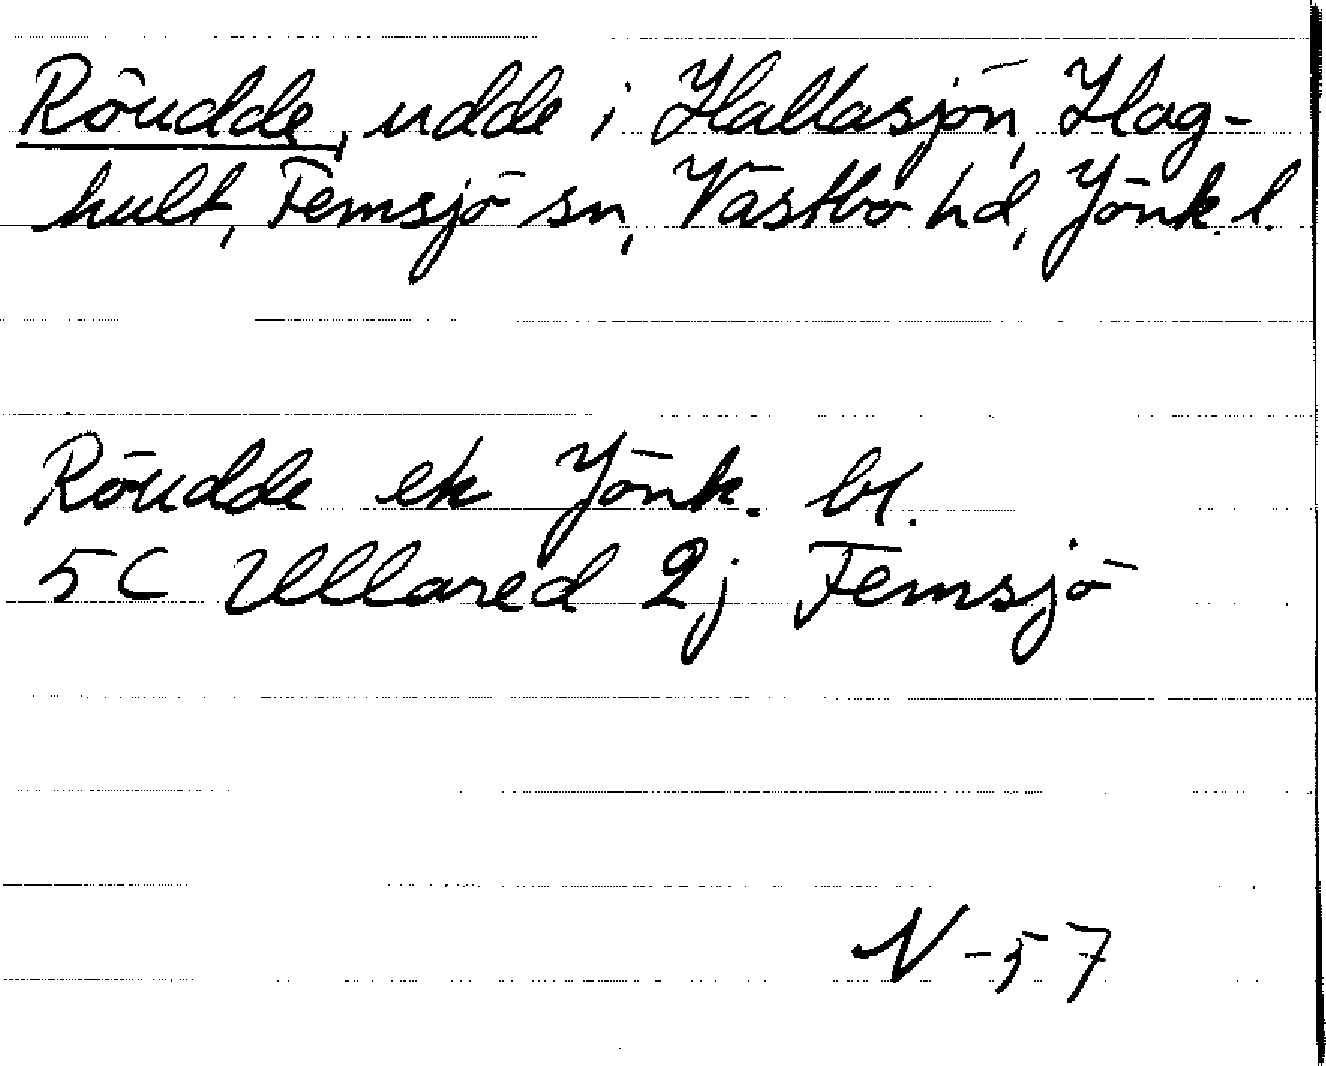 Röudde, udde i Hallasjön, Hag-
hult, Femsjö sn, Västbo hd, Jönk. l.
Röudde ek Jönk. bl.
5C Ullared 2j Femsjö
N -57